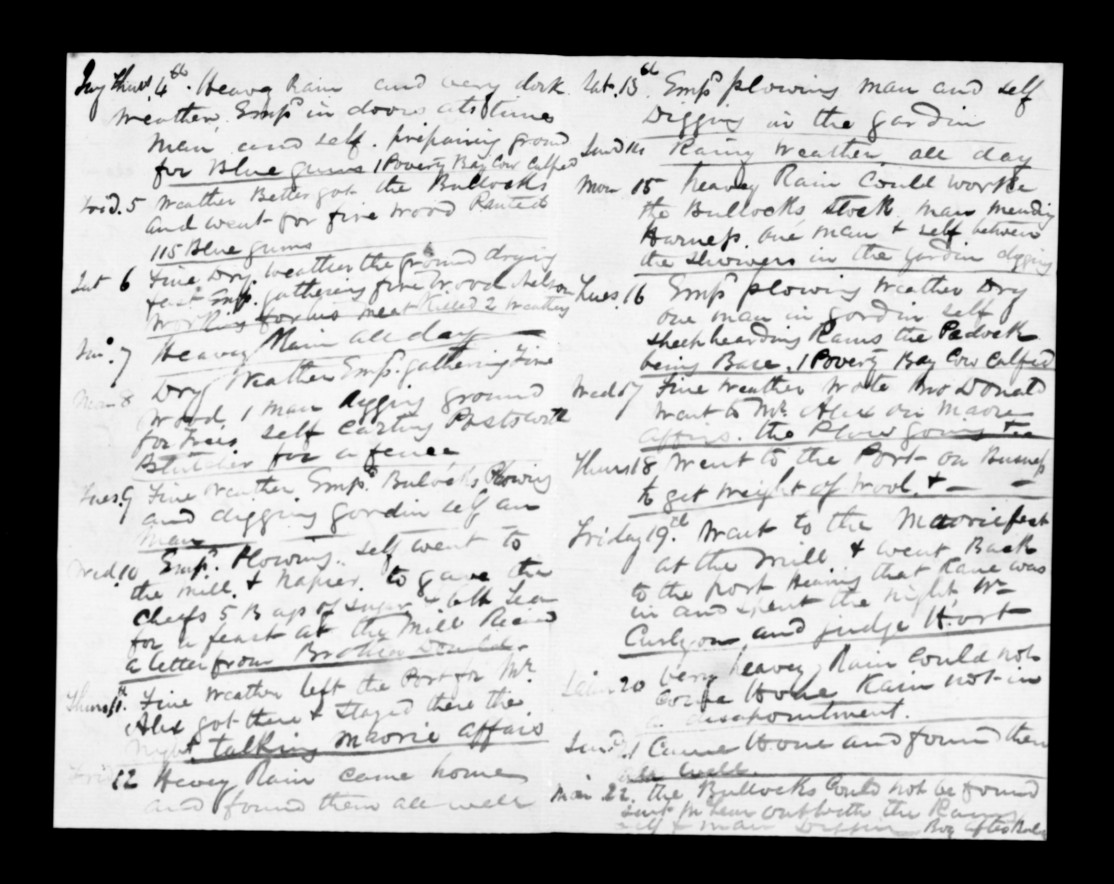 July Thurs 4th. Heavy Rain and very dark
weather. Empd in doors at time
man and self. prepairing ground
for Blue gums 1 Poverty Bay Cow Calfed
Frid. 5 weather Better got the Bullocks
and went for fire wood Planted
115 Blue gums
Sat 6 Fine Dry weather the ground drying
fast Empd. gathering fire wood Nelson
working for his meat Killed 2 weathers
Sun. 7 Heavy Rain all day
Mon 8 Dry Weather Empd. gathering Fire
wood, 1 man digging ground
for trees self carting Posts with
for a fence
Tues. 9 Fine Weather Empd. Bullocks Plowing
and digging gordin self an
man
Wed 10 Empd. Plowing. self went to
the mill & Napier. to gave the
cheifs 5 Bags of sugar & Tea
for a feast at the Mill Recived
a letter from Brother Donald.
Thurs 11th. Fine weather left the Port for Mr
Alex got there & Stayed there the
night talking maorie affairs
Frid 12 Heavey Rain came home
and found them all well
Sat. 13th Empd plowing man and self
Digging in the gardin
Sund 14 Rainy weather all day
Mon 15 heavey Rain Could worke
the Bullocks, man mending
Harness. one man & self between
the showers in the gardin digging
Tues. 16 Empd plowing weather Dry
one man in gordin self
sheep hearding Rams the Padock
being Bare. 1 Poverty Bay Cow Calfed
Wed 17 Fine weather wrote Bro Donald
went to Mr Alex on Maorie
affairs. the Plow going
Thurs 18 Went to the Port on Busness
to get weight of wool. &
Friday 19th. Went to the Maorie fest
at the mill & went Back
to the port Hearing that Rane was
in and spent the night Wm
Curlyon and judge H.ort
20 Very heavey Rain Could not
Come Home Rain not in
a disapointment.
Sund 21 Came Home and found them
all well.
Mon 22. the Bullocks Could not be found
sent out with the Rams
self & man